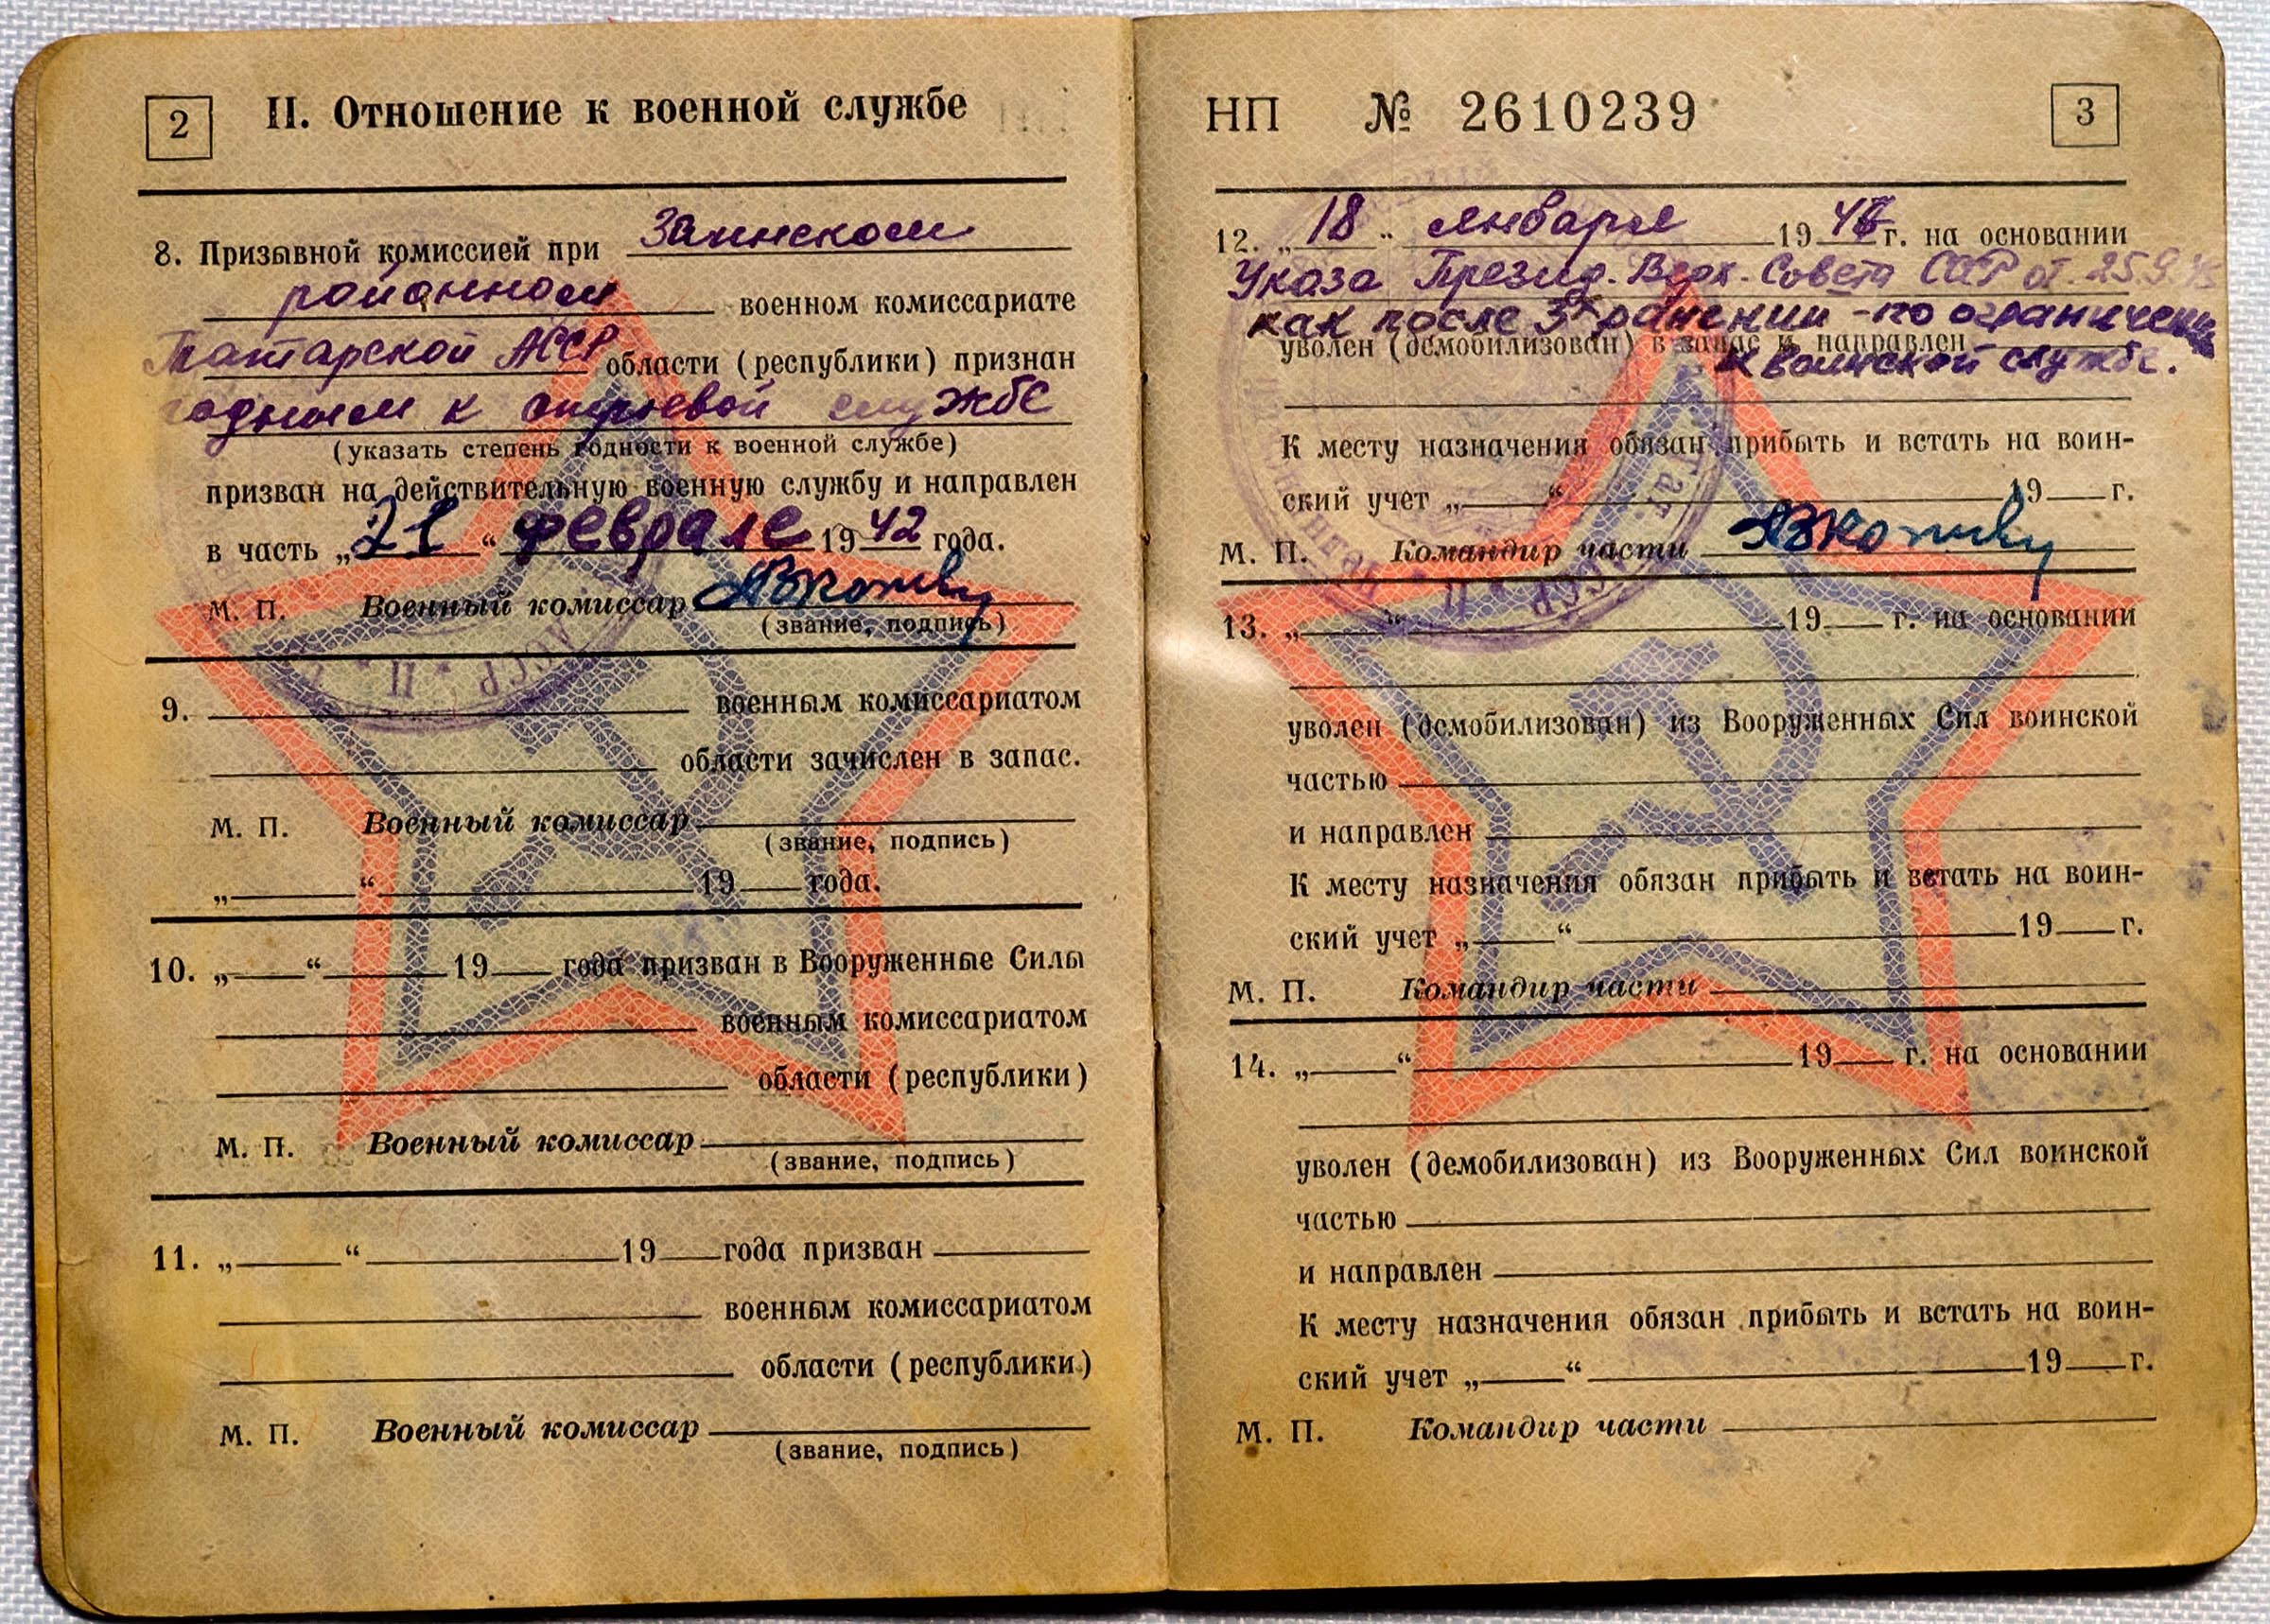 2
II. Отношение к военной службе
8. Призывной комиссией при Заинском
районном военном комиссариате
Татарской АССР области (республики) признан
годным к строевой службе
(указать степень годности к военной службе)
призван на действительную военную службу и направлен
в часть „21“ февраля 1942 года.
М. П. Военный комиссар
(звание, подпись)
9. военным комиссариатом
области зачислен в запас.
М. П. Военный комиссар
(звание, подпись)
„ “ 19 года.
10. „ “ 19 года призван в Вооруженные Силы
военным комиссариатом
области (республики)
М. П. Военный комиссар
(звание, подпись)
11. „ “ 19 года призван
военным комиссариатом
области (республики)
М. П. Военный комиссар
(звание, подпись)
НП № 2610239
3
12. „18“ января 19 г. на основании
Указа Презид. Верх. Совета СССР от 25.9.45
как после 3х ранении - по ограничению
уволен (демобилизован) в запас и направлен
к воинской службе.
К месту назначения обязан прибыть и встать на воин-
ский учет „ “ 19 г.
М. П. Командир части
13. „ “ 19 г. на основании
уволен (демобилизован) из Вооруженных Сил воинской
частью
и направлен
К месту назначения обязан прибыть и встать на воин-
ский учет „ “ 19 г.
М. П. Командир части
14. „ “ 19 г. на основании
уволен (демобилизован) из Вооруженных Сил воинской
частью
и направлен
К месту назначения обязан прибыть и встать на воин-
ский учет „ “ 19 г.
М. П. Командир части